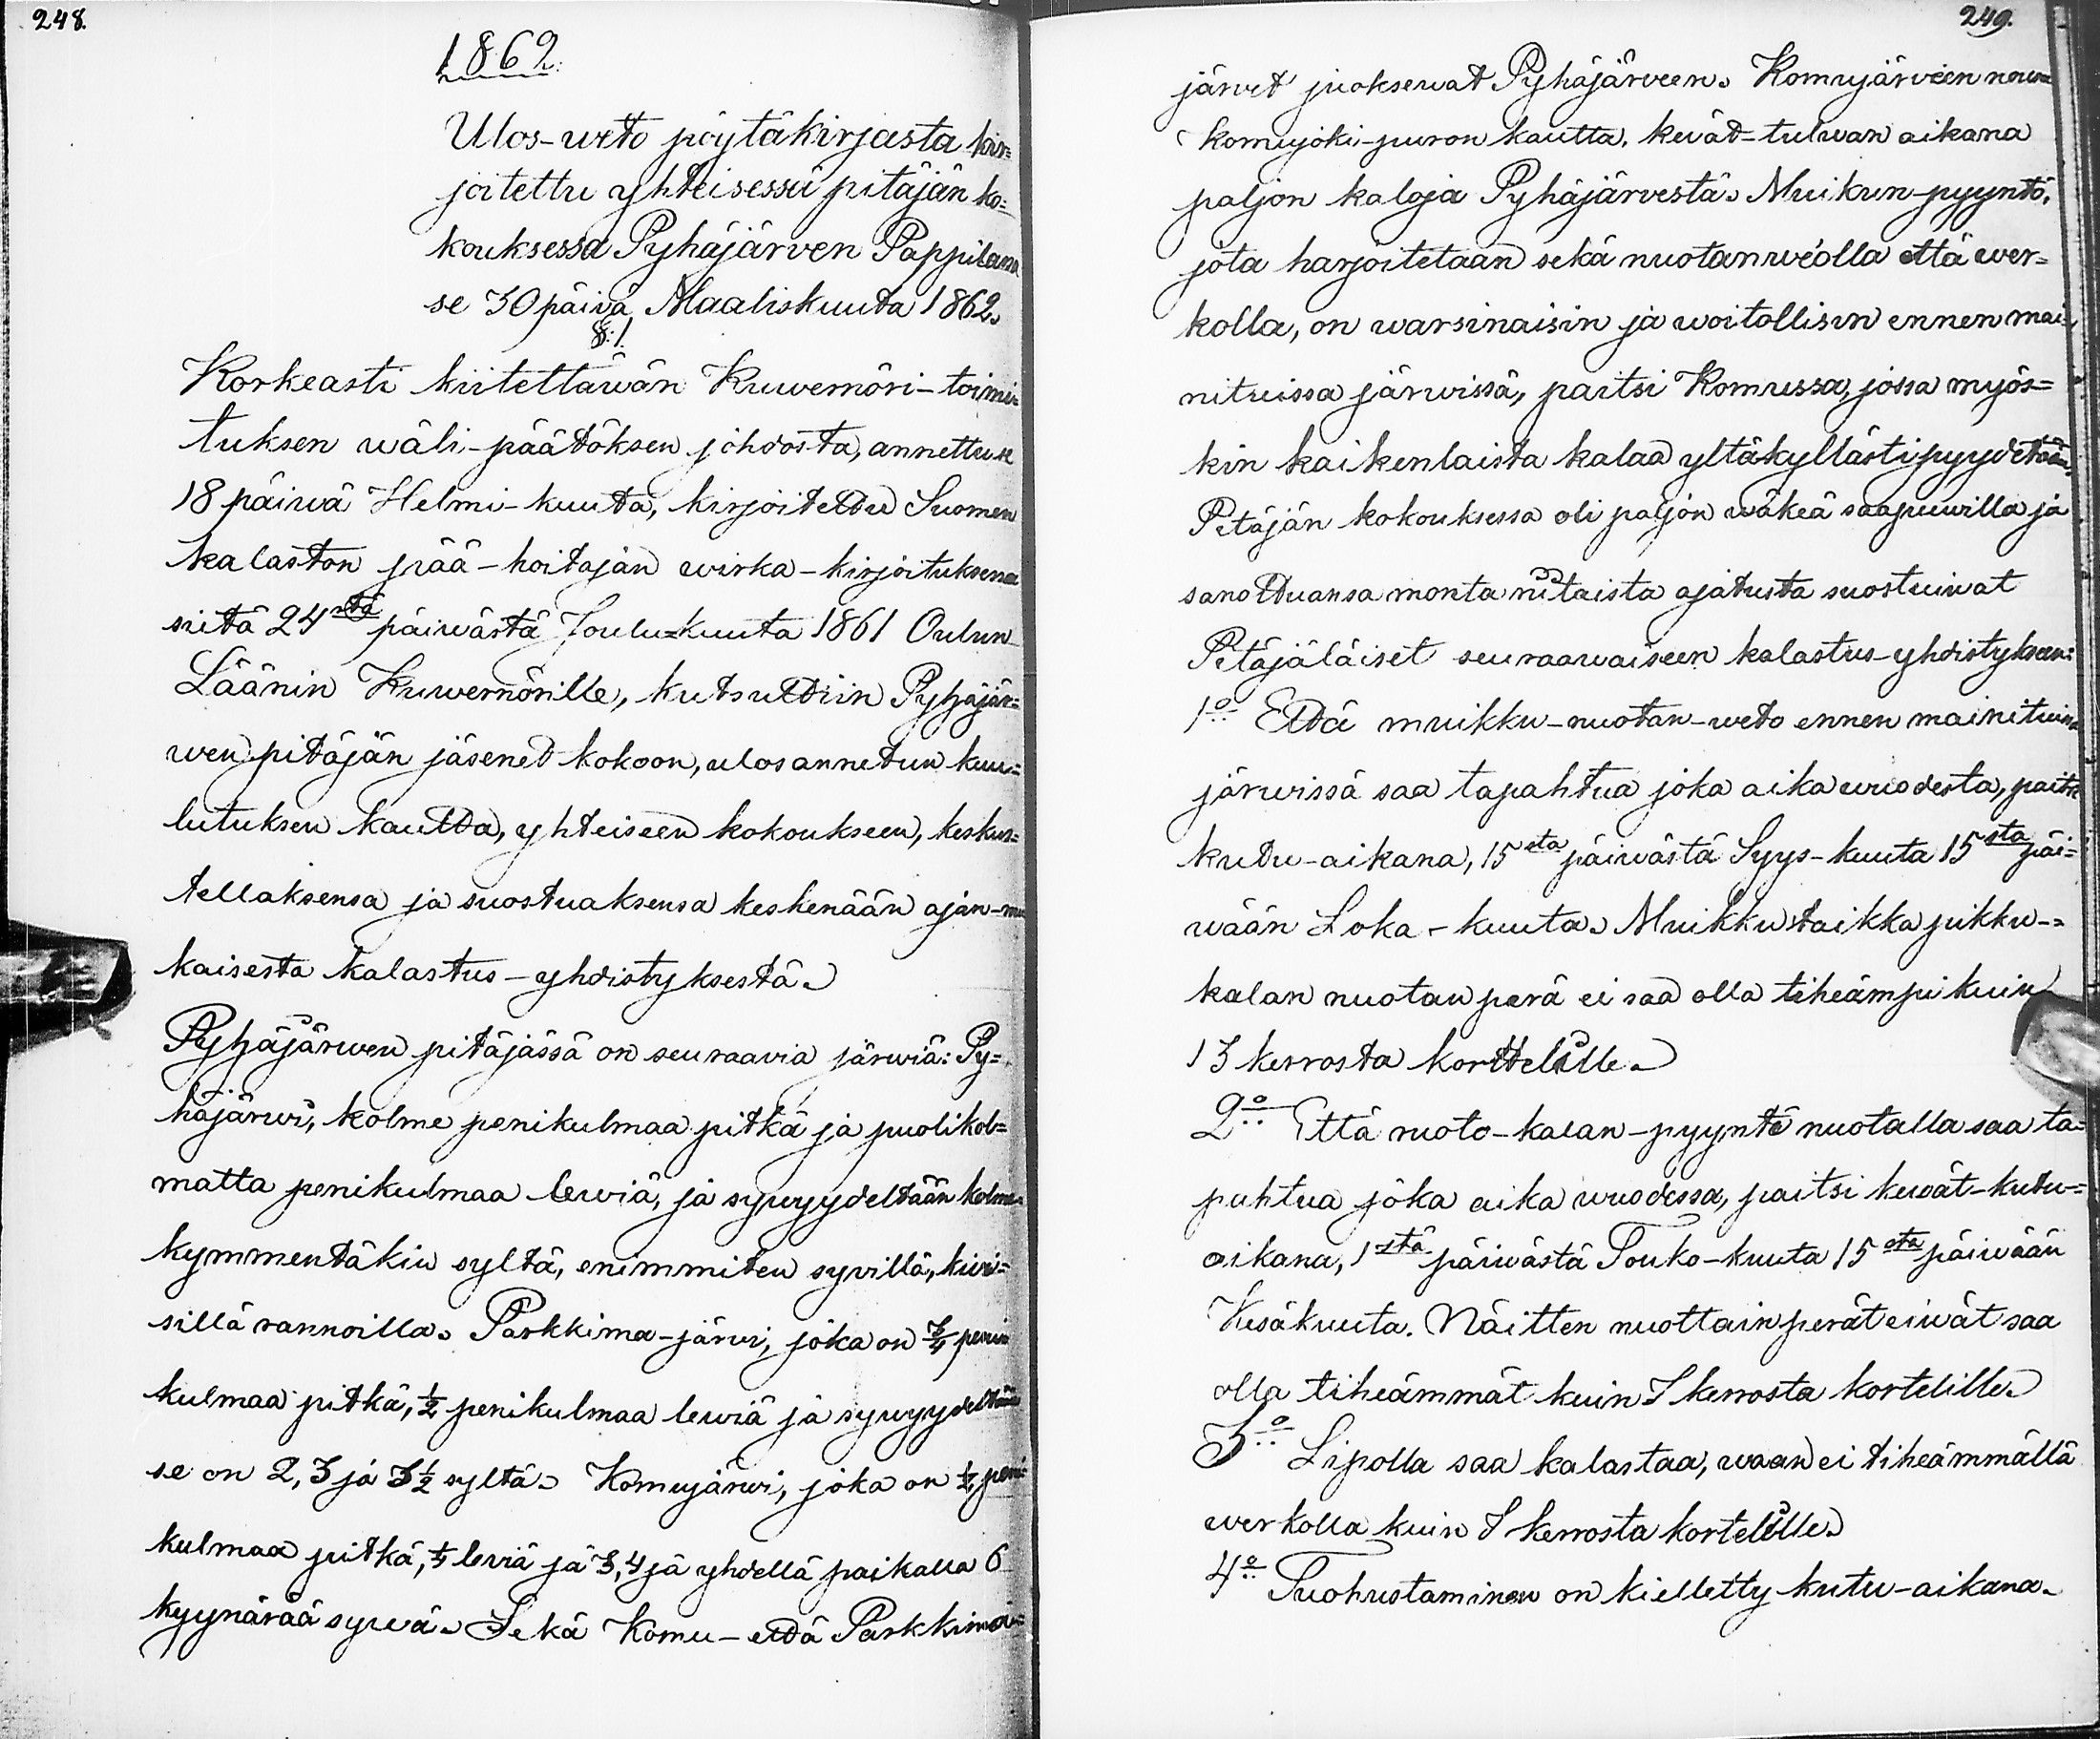 248.
1862.
Ulos-weto pöytäkirjasta kir=
joitettu yhteisessä pitäjän ko=
kouksessa Pyhäjärven Pappilana
se 30 päivä Maaliskuuta 1862.
§. 1.
Korkeasti kiitettäwän Kuwernöri-toimi-
tuksen wäli-päätöksen johdosta, annettu se
18 päiwä Helmi-kuuta, kirjoitettu Suomen
kalaston pää-hoitajan wirka-kirjoituksena
siitä 24stä päiwästä Joulu=kuuta 1861 Oulun
Läänin Kuwernörille, kutsuttiin Pyhäjär=
wen pitäjän jäsenet kokoon, ulosannetun kuu=
lutuksen kautta, yhteiseen kokoukseen, keskus=
tellaksensa ja suostuaksensa keskenään ajan-mu
kaisesta kalastus-yhdistyksestä.
Pyhäjärwen pitäjässä on seuraavia järwiä: Py=
häjärwi, kolme penikulmaa pitkä ja puolikol=
matta penikulmaa lewiä, ja sywyydeltään kolme
kymmentäkin syltä, enimmiten syvillä, kiwi=
sillä rannoilla. Parkkima-järwi, joka on 3/4 peni
kulmaa pitkä, 1/2 penikulmaa lewiä ja sywyydeltään
se on 2, 3 ja 3 1/2 syltä. Komujärwi, joka on 1/2 peni-
kulmaa pitkä, 1/4 leviä ja 3, 4 ja yhdellä paikalla 6
kyynärää sywä. Sekä Komu-että Parkkima-
249.
järvet juoksewat Pyhäjärveen. Komujärveen nousee
Komujoki-puron kautta, kevät=tulwan aikana
paljon kaloja Pyhäjärvestä. Muikun-pyyntö,
jota harjoitetaan sekä nuotanweolla että wer=
kolla, on warsinaisin ja woitollisin ennen mai=
nituissa järwissä, paitsi Komussa, jossa myös=
kin kaikenlaista kalaa yltäkyllästi pyydetään.
Pitäjän kokouksessa oli paljon wäkeä saapuwilla ja
sanottuansa monta niitaista ajatusta suostuiwat
Pitäjäläiset seuraawaiseen kalastus-yhdistykseen:
1o Että muikku-nuotan-weto ennen mainituissa
järwissä saa tapahtua joka aika wuodesta, paitsi
kutu-aikana, 15sta päiwästä Syys-kuuta 15sta päi=
wään Loka-kuuta. Muikku taikka pikku-=
kalan nuotan perä ei saa olla tiheämpi kuin
13 kerrosta korttelille.
2o Että ruoto-kalan-pyyntö nuotalla saa ta=
pahtua joka aika wuodessa, paitsi kewät-kutu-=
aikana, 1stä päiwästä Touko-kuuta 15sta päiwään
Kesäkuuta. Näitten nuottain perät eiwät saa
olla tiheämmät kuin 8 kerrosta kortelille.
3o Lipolla saa kalastaa, waan ei tiheämmällä
werkolla kuin 8 kerrosta kortelille.
4o Tuohustaminen on kielletty kutu-aikana.